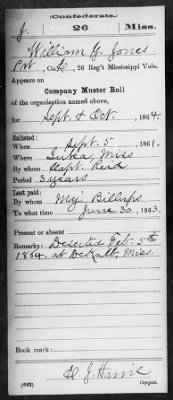 Confederate.
J. 26 Miss.
William G. Jones
Pvt, Co. D, 26 Reg't Mississippi Vols.
Appears on
Company Muster Roll
of the organization named above,
for Sept. & Oct., 1864.
Enlisted:
When Sept. 5, 1861.
Where Iuka, Miss
By whom Capt. Reid
Period 3 years
Last paid:
By whom Maj Billups
To what time June 30, 1863.
Present or absent
Remarks: Deserted Feb. 5th
1864 at DeKalb, Miss.
Book mark:
(642) Copyist.